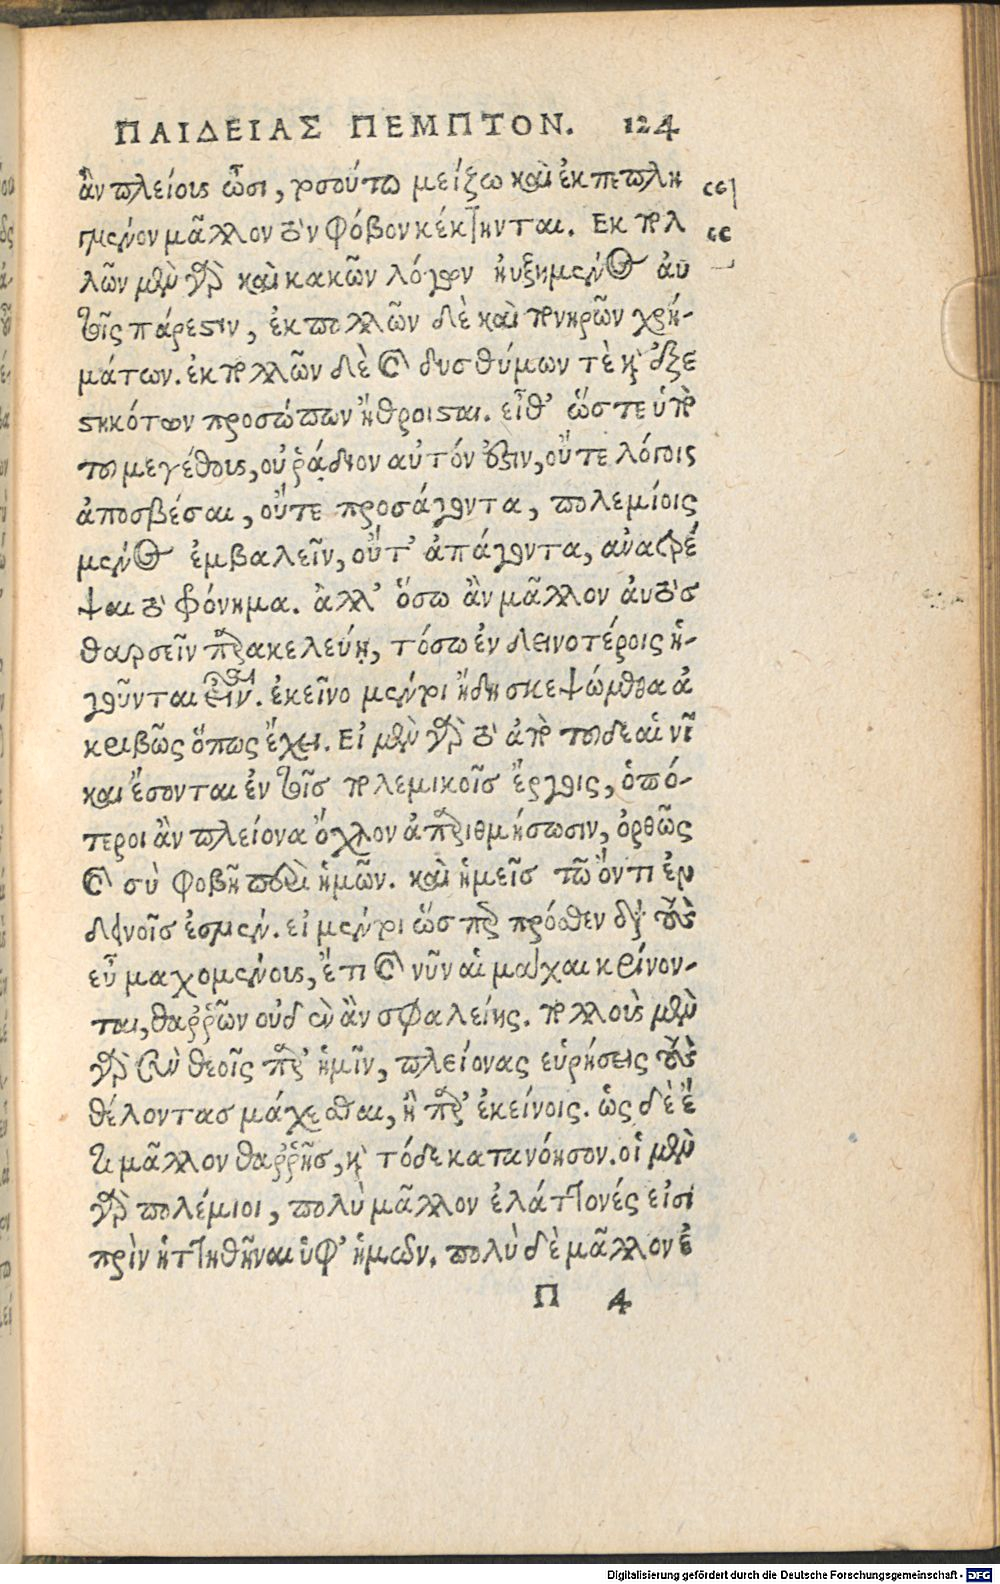 ΠΑΙΔΕΙΑΣ ΠΕΜΠΤΟΝ. 124
ἂν πλείους ὦσι, τοσούτῳ μείζω καὶ ἐκπεπλη
γμένον μᾶλλον τὸν φόβον κέκτηνται. Ἐκ πολ
λῶν μὲν γὰρ καὶ κακῶν λόγων ηὐξημένος αὐ
τοῖς πάρεστιν, ἐκ πολλῶν δὲ καὶ πονηρῶν χρη-
μάτων. ἐκ πολλῶν δὲ καὶ δυσθύμων τὲ καὶ ἐξε
στηκότων προσώπων ἤθροισται. εἶθ' ὥστε ὑπὸ
του μεγέθους, οὐ ῥᾴδιον αὐτόν ἐστιν, οὔτε λόγοις
ἀποσβέσαι, οὔτε προσάγοντα, πολεμίοις
μένος ἐμβαλεῖν, οὔτ' ἀπάγοντα, ἀναστρέ
ψαι τὸ φρόνημα. ἀλλ' ὅσω ἂν μᾶλλον αὐτοὺς
θαρσεῖν παρακελεύῃ, τόσω ἐν δεινοτέροις ἡ-
γοῦνται εἶναι. ἐκεῖνο μέντοι ἤδη σκεψώμεθα ἀ
κριβῶς ὅπως ἔχει. Εἰ μὲν γὰρ τὸ ἀπὸ τουδε αἱ νῖ
και ἔσονται ἐν τοῖς πολεμικοῖς ἔργοις, ὁπό-
τεροι ἂν πλείονα ὄχλον ἀπαριθμήσωσιν, ὀρθῶς
καὶ σὺ φοβῇ περὶ ἡμῶν. καὶ ἡμεῖς τῷ ὄντι ἐν
δεινοῖς ἐσμέν. εἰ μέντοι ὥσπερ πρόσθεν διὰ τοὺς
εὖ μαχομένους, ἔτι καὶ νῦν αἱ μάχαι κρίνον-
ται, θαῤῥῶν οὐδὲν ἂν σφαλείης. πολλοὺς μὲν
γὰρ σὺν θεοῖς παρ' ἡμῖν, πλείονας εὑρήσεις τοὺς
θέλοντας μάχεσθαι, ἢ παρ' ἐκείνοις. ὡς δὲ ἔ
τι μᾶλλον θαῤῥῇς, καὶ τόδε κατανόησον. οἱ μὲν
γὰρ πολέμιοι, πολὺ μᾶλλον ἐλάττονές εἰσι
πρὶν ἡττηθῆναι ὑφ' ἡμῶν. πολὺ δὲ μᾶλλον ἐ
Π 4
Digitalisierung gefördert durch die Deutsche Forschungsgemeinschaft - DFG